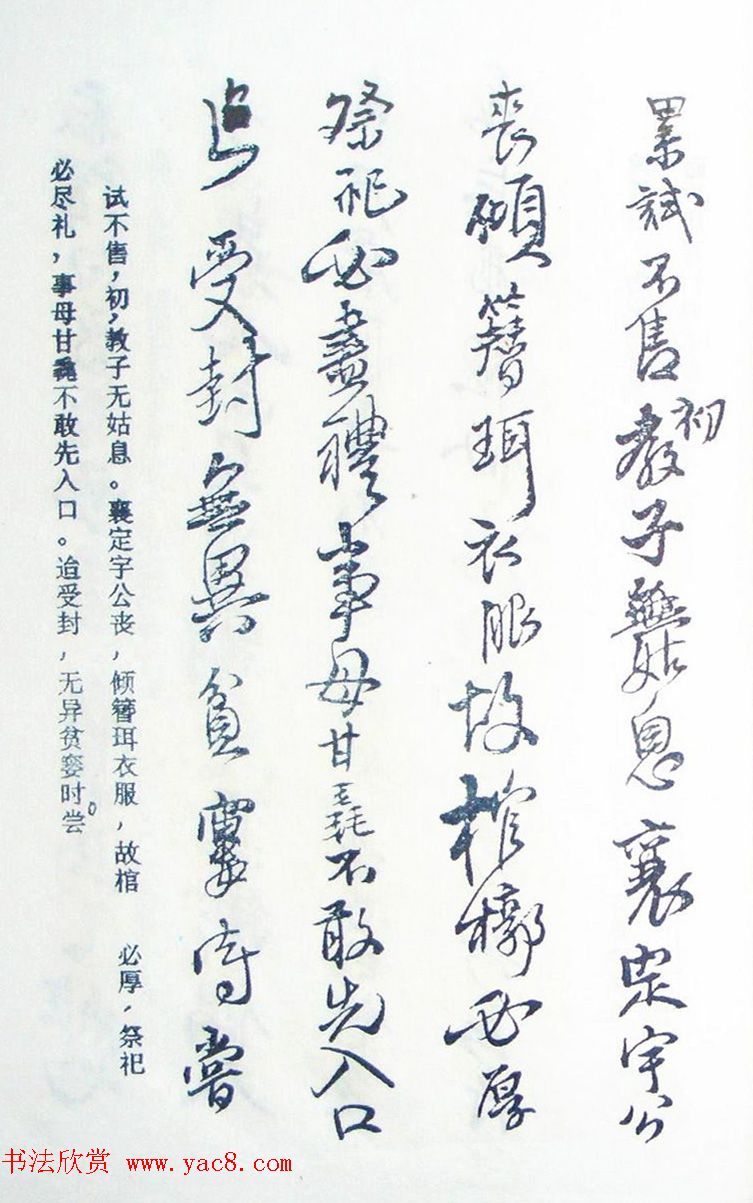 累試不售初教子無姑息襄定宇公
喪傾簪珥衣服故棺槨必厚
祭祀必盡禮事母甘毳不敢先入口
迨受封無異貧窶時嘗
试不售，初，教子无姑息。襄定字公丧，倾簪珥衣服，故棺 必厚，祭祀
必尽礼，事母甘毳不敢先入口。迨受封，无异贫窭时。尝
书法欣赏 www.yac8.com